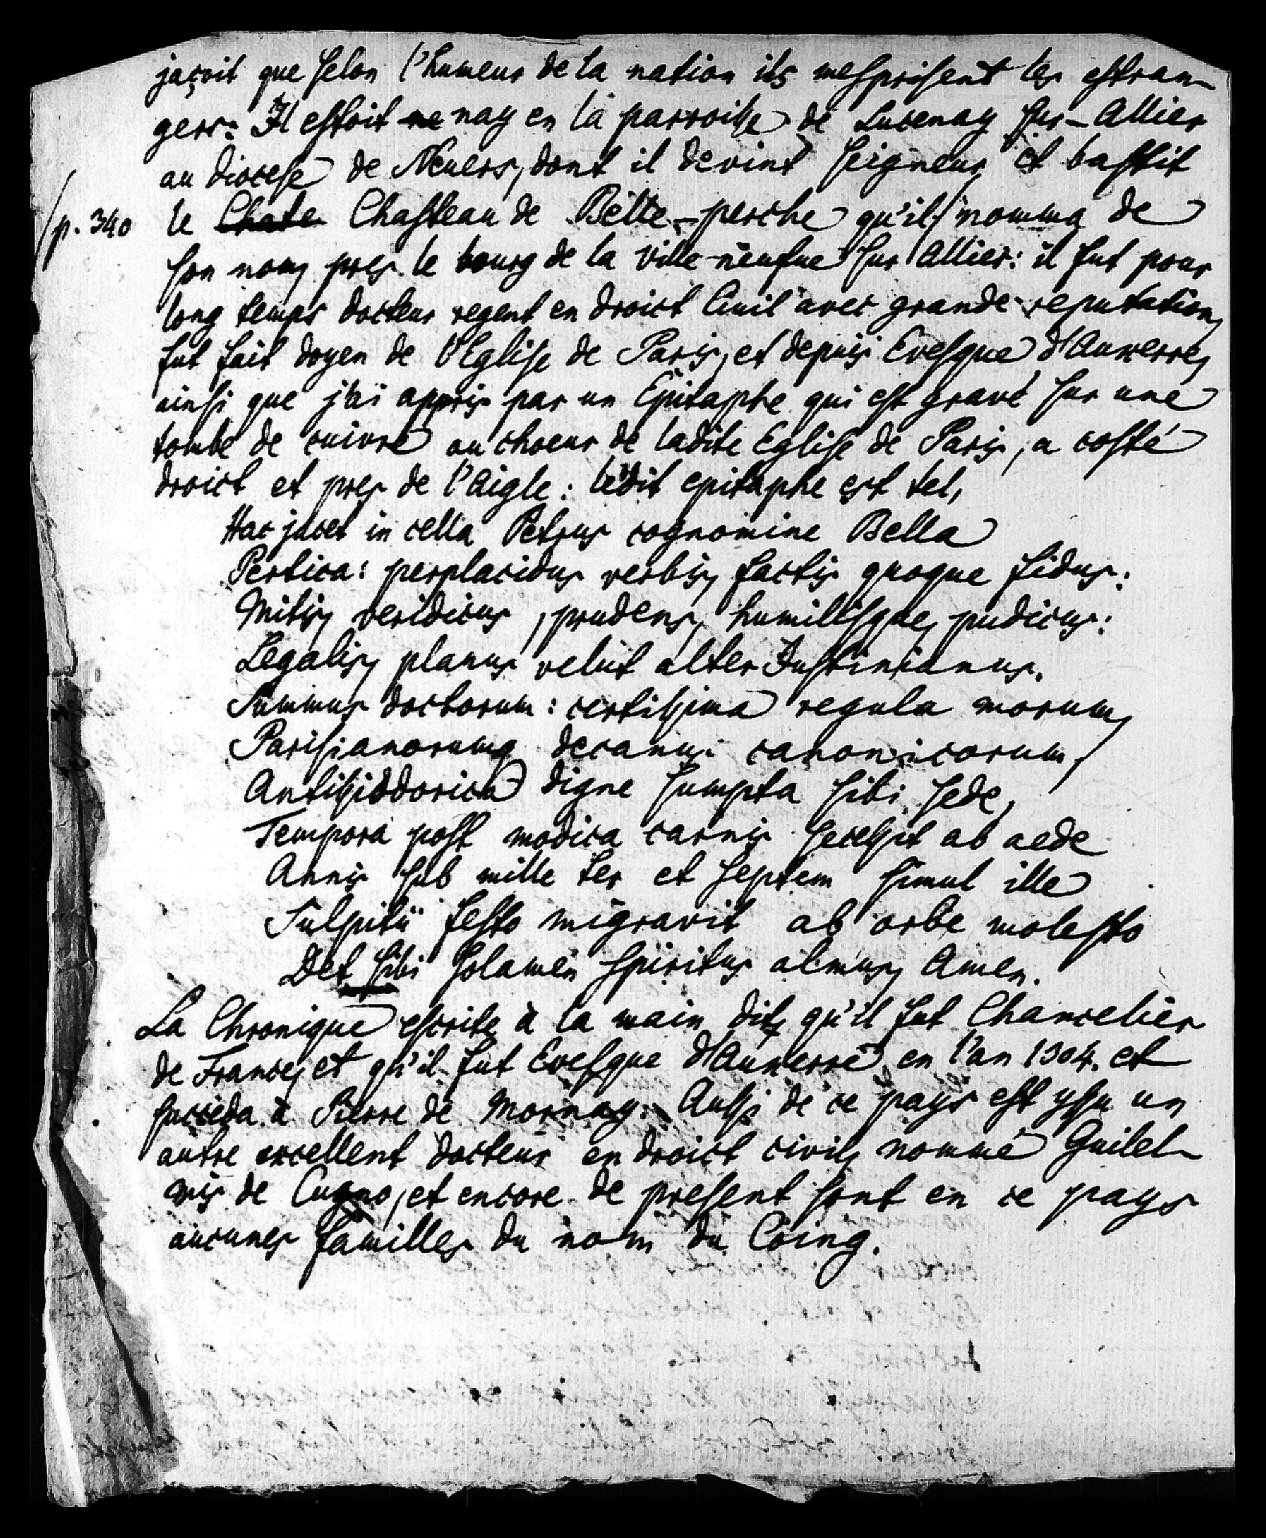 jaçoit que selon l'humeur de la nation ils mesprisent les estran-
gers: Il estoit ne nay en la parroisse de Lucenay sur-Allier
au diocese de Nevers, dont il devint seigneur, et bastit
/p. 340 le Chate Chasteau de Belle-perche qu'il/nomma de
son nom, pres le bourg de la ville-neufue sur Allier: il fut pour
long temps docteur regent en droict Civil avec grande reputation,
fut fait doyen de l'Eglise de Paris, et depuis Evesque d'Auxerre,
ainsi que j'ai appris par un Epitaphe qui est gravé sur une
tombe de cuivre au choeur de ladite Eglise de Paris, a costé
droict et pres de l'Aigle: ledit epitaphe est tel,
Hac jacet in cella Petrus cognomine Bella
Pertica: perplacidus verbis, factis quoque fidus:
Mitis, veridicus, prudens, humilisque, pudicus:
Legalis, planus velut alter Justinianus.
Summus doctorum: certissima regula morum,
Parisianorumq decanus canonicorum,
Antissiodorica digne sumpta sibi sede,
Tempora post modica carnis secessit ab aede
Annis sub mille ter et septem simul ille
Sulpitii festo migravit ab orbe molesto
Det sibi solamen spiritus almus, Amen.
La Chronique escrite à la main dit, qu'il fut Chancelier
de France, et qu'il fut Evesque d'Auxerre en l'an 1304. et
succeda à Pierre de Mornay. Aussi de ce pays est yssu un
autre excellent docteur en droict civil, nommé Guilel-
mus de Cugno, et encore de present sont en ce pays
aucunes familles du nom du Coing.